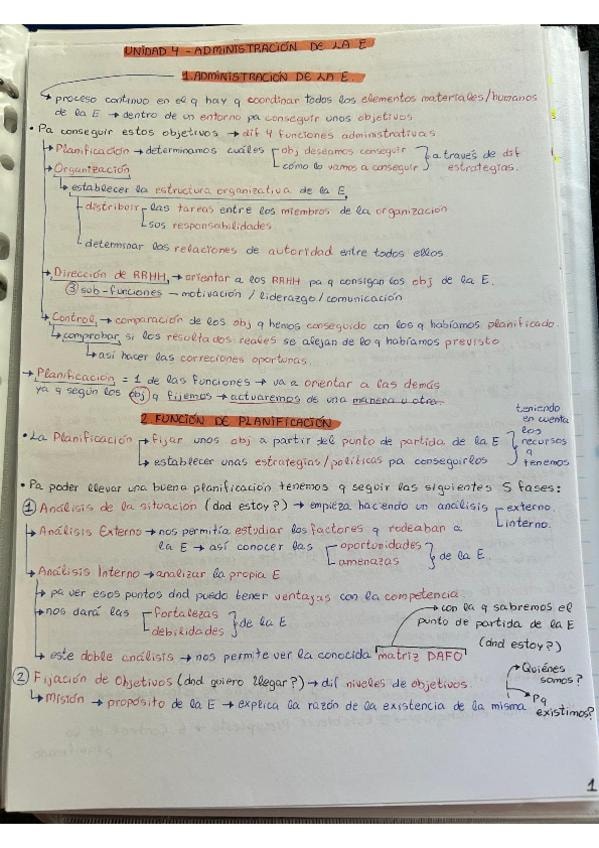 UNIDAD 4 - ADMINISTRACIÓN DE LA E
1. ADMINISTRACIÓN DE LA E.
↳ proceso continuo en el q hay q coordinar todos los elementos materiales/humanos
de la E → dentro de un entorno pa conseguir unos objetivos
• Pa conseguir estos objetivos → dif 4 funciones administrativas
↳ Planificación → determinamos cuáles [ obj deseamos conseguir } a través de dif
cómo lo vamos a conseguir } estrategias.
↳ Organización
↳ establecer la estructura organizativa de la E,
- distribuir - las tareas entre los miembros de la organización
- sus responsabilidades
- determinar las relaciones de autoridad entre todos ellos
↳ Dirección de RRHH, → orientar a los RRHH pa q consigan los obj de la E.
③ sub-funciones - motivación / liderazgo / comunicación
↳ Control, → comparación de los obj q hemos conseguido con los q habíamos planificado.
↳ comprobar si los resultados reales se alejan de lo q habíamos previsto
↳ así hacer las correciones oportunas.
→ Planificación = 1 de las funciones → va a orientar a las demás
ya q según los obj q fijemos → actuaremos de una manera u otra.
2. FUNCIÓN DE PLANIFICACIÓN
• La Planificación → fijar unos obj a partir del punto de partida de la E
↳ establecer unas estrategias/políticas pa conseguirlos
teniendo
en cuenta
los
recursos
q
tenemos
• Pa poder llevar una buena planificación tenemos q seguir las siguientes 5 fases:
① Análisis de la situación (dnd estoy?) → empieza haciendo un análisis [ externo.
interno.
→ Análisis Externo → nos permitía estudiar los factores q rodeaban a
la E → así conocer las [ oportunidades } de la E.
amenazas
↳ Análisis Interno → analizar la propia E
→ pa ver esos puntos dnd puedo tener ventajas con la competencia.
→ nos dará las [ fortalezas } de la E
debilidades
→ con la q sabremos el
punto de partida de la E
(dnd estoy?)
↳ este doble análisis → nos permite ver la conocida matriz DAFO
② Fijación de Objetivos (dnd quiero llegar?) → dif niveles de objetivos.
↳ Misión → propósito de la E → explica la razón de la existencia de la misma
→ Quiénes
somos?
→ Pq
existimos?
1